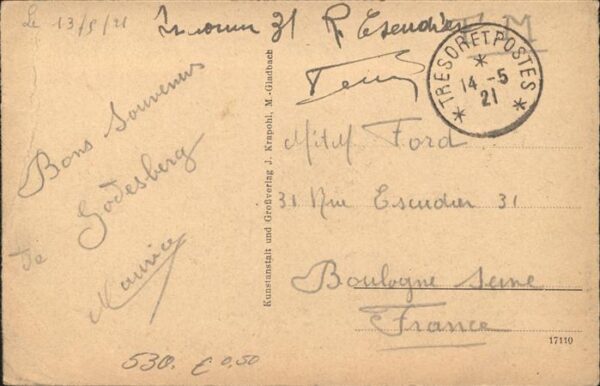 Le 13/5/21
Inconnu 31 R Escudier
F.M
TRESOR ET POSTES
*
14 -5
21
* *
Bons Souvenirs
de Godesberg
Maurice
Kunstanstalt und Großverlag J. Krapohl, M.-Gladbach
Ford
31 Rue Escudier 31
Boulogne Seine
France
17110
530. € 0,50